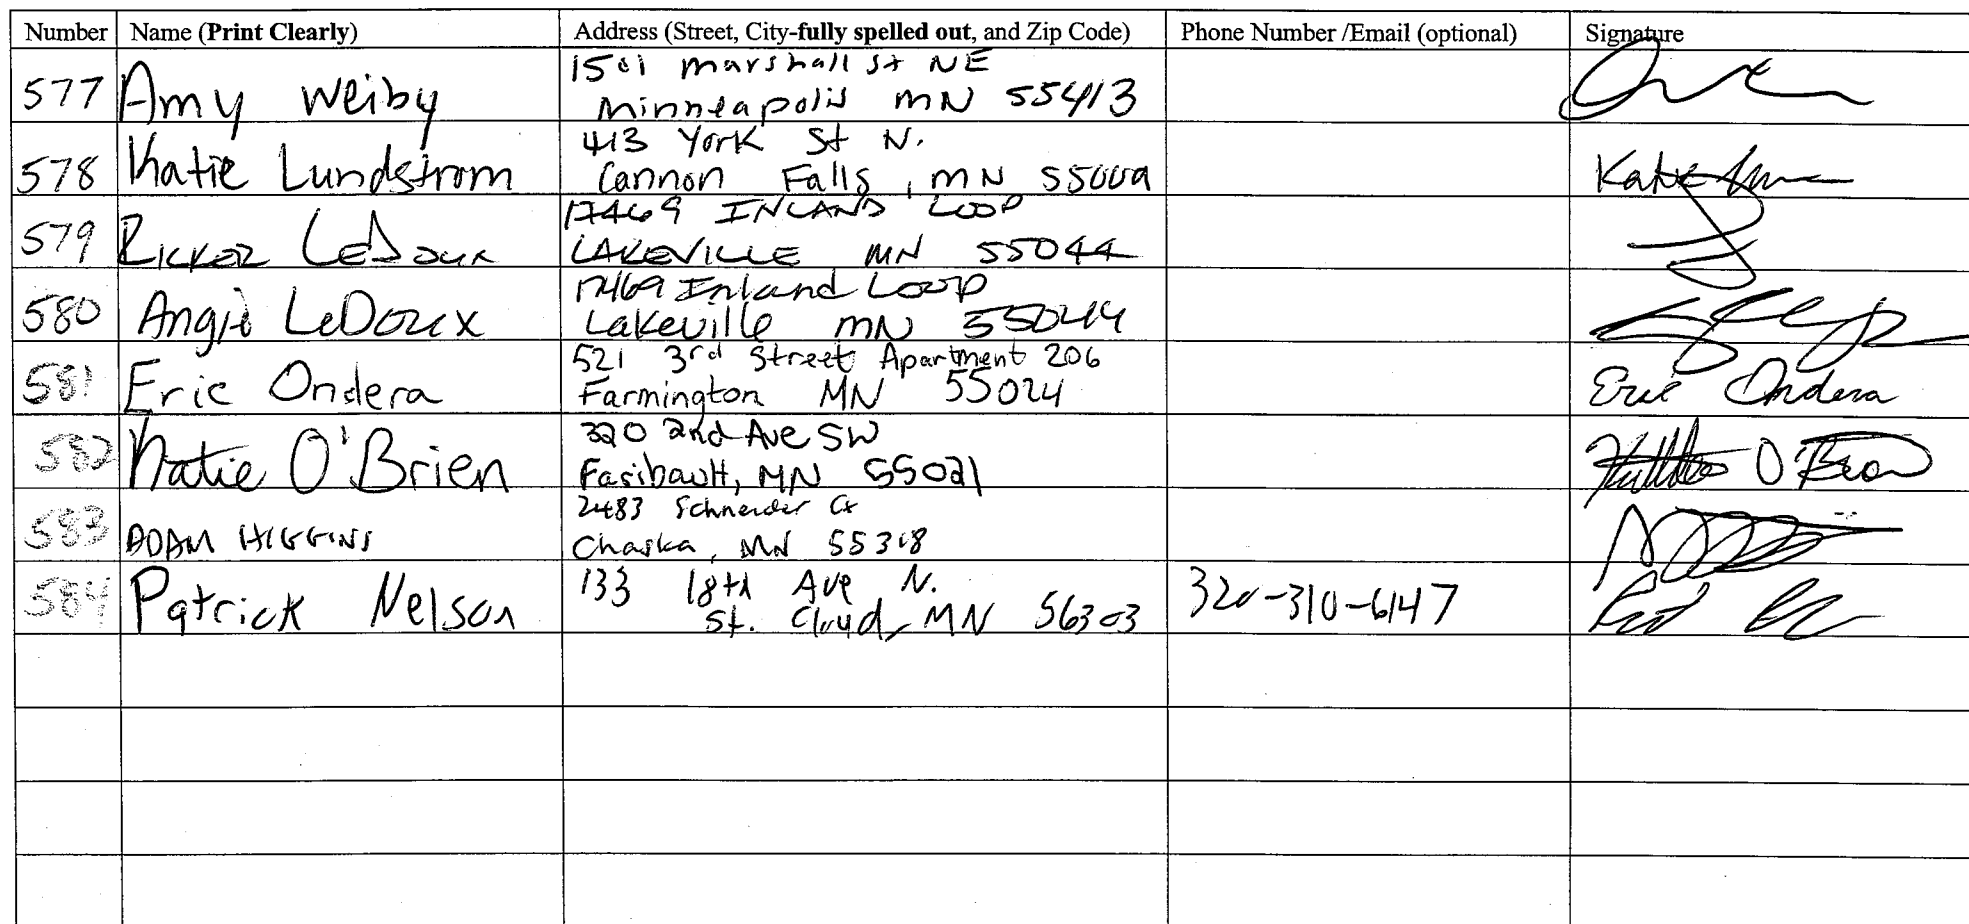 Number Name (Print Clearly) Address (Street, City-fully spelled out, and Zip Code) Phone Number /Email (optional) Signature
577 Amy Weiby 1501 Marshall St NE
Minneapolis MN 55413
578 Katie Lundstrom 413 York St N.
Cannon Falls, MN 55009 Katie
579 LeDoux 17469 INLAND LOOP
LAKEVILLE MN 55044
580 Angie LeDoux 17469 Inland Loop
Lakeville MN 55044
581 Eric Ondera 521 3rd Street Apartment 206
Farmington MN 55024 Eric Ondera
582 Katie O'Brien 320 2nd Ave SW
Faribault, MN 55021 O'Brien
583 ADAM HIGGINS 2483 Schneider Ct
Chaska, MN 55318
584 Patrick Nelson 133 18th Ave N.
St. Cloud, MN 56303 320-310-6147